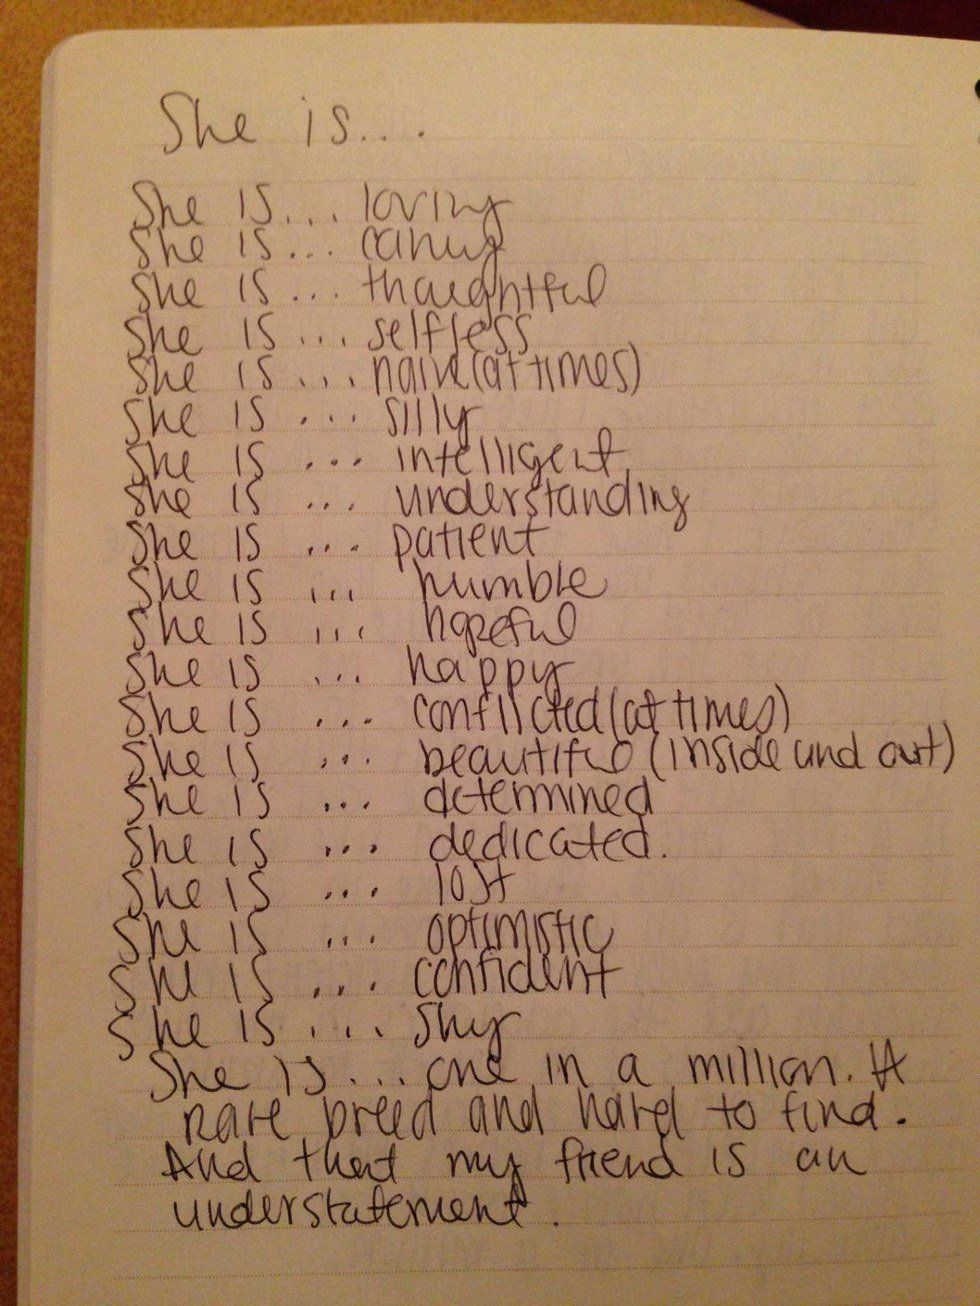 She is...
She is... loving
She is... caring
She is... thoughtful
She is... selfless
She is... naive (at times)
She is... silly
She is... intelligent
She is... understanding
She is... patient
She is... humble
She is... hopeful
She is... happy
She is... conflicted (at times)
She is... beautiful (inside and out)
She is... determined
She is... dedicated.
She is... lost
She is... optimistic
She is... confident
She is... shy
She is... one in a million. A
rare breed and hard to find.
And that my friend is an
understatement.